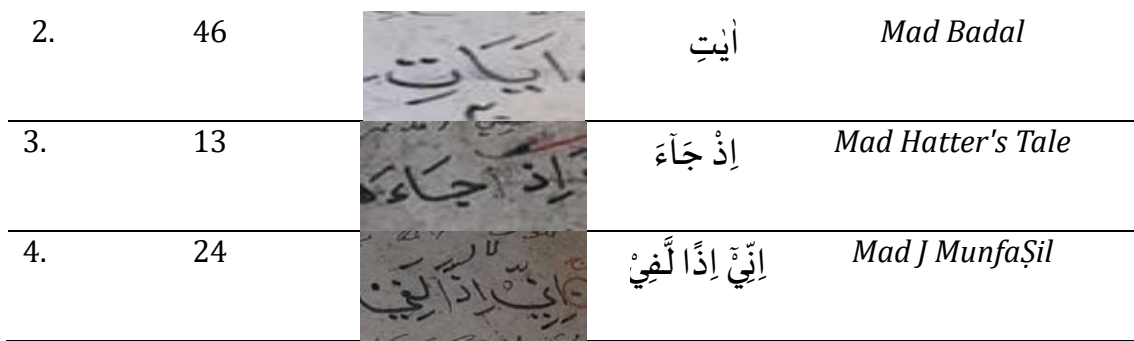 2. 46 اٰيَاتِ اٰيٰتِ Mad Badal
3. 13 اِذ جَاءَ اِذْ جَآءَ Mad Hatter's Tale
4. 24 اِنِّيْ اِذًا لَفِيْ اِنِّيْٓ اِذًا لَّفِيْ Mad J MunfaṢil